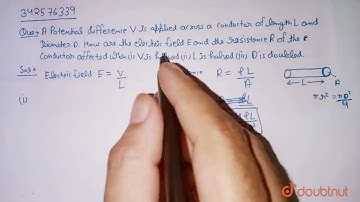 342576339
Ques: A Potential difference V is applied across a conductor of length L and
Diameter D. How are the electric field E and the resistance R of the
conductor affected when (i) V is halved (ii) L is halved (iii) D is doubled.
Sol: Electric field E = V/L R = ρL/A
(i)
L
πr² = πD²/4
doubtnut